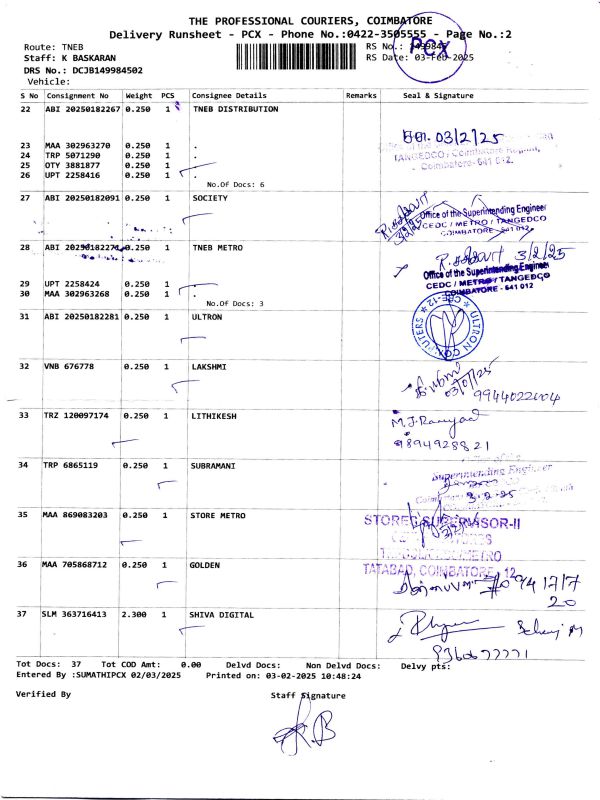 THE PROFESSIONAL COURIERS, COIMBATORE
Delivery Runsheet - PCX - Phone No.:0422-3505555 - Page No.:2
Route: TNEB
RS No.: 1499845
PCX
Staff: K BASKARAN
RS Date: 03-Feb-2025
DRS No.: DCJB149984502
Vehicle:
S No Consignment No Weight PCS Consignee Details Remarks Seal & Signature
22 ABI 20250182267 0.250 1 TNEB DISTRIBUTION
03/2/25
TANGEDCO, Coimbatore Region,
Coimbatore-641 012.
23 MAA 302963270 0.250 1 .
24 TRP 5071290 0.250 1 .
25 OTY 3881877 0.250 1
26 UPT 2258416 0.250 1 .
No.Of Docs: 6
27 ABI 20250182091 0.250 1 SOCIETY
3/2/25
Office of the Superintending Engineer
CEDC / METRO / TANGEDCO
COIMBATORE - 641 012
28 ABI 20250182271 0.250 1 TNEB METRO
3/2/25
Office of the Superintending Engineer
CEDC / METRO / TANGEDCO
COIMBATORE - 641 012
29 UPT 2258424 0.250 1 .
30 MAA 302963268 0.250 1 .
No.Of Docs: 3
31 ABI 20250182281 0.250 1 ULTRON
ULTRON COMPUTERS CBE-12
32 VNB 676778 0.250 1 LAKSHMI
03/02/25
9944022004
33 TRZ 120097174 0.250 1 LITHIKESH
9894928821
34 TRP 6865119 0.250 1 SUBRAMANI
Superintending Engineer
3.2.25
35 MAA 869083203 0.250 1 STORE METRO
STORES SUPERVISOR-II
TATABAD, COIMBATORE - 12
36 MAA 705868712 0.250 1 GOLDEN
37 SLM 363716413 2.300 1 SHIVA DIGITAL
Tot Docs: 37 Tot COD Amt: 0.00 Delvd Docs: Non Delvd Docs: Delvy pts:
Entered By :SUMATHIPCX 02/03/2025 Printed on: 03-02-2025 10:48:24
Verified By Staff Signature